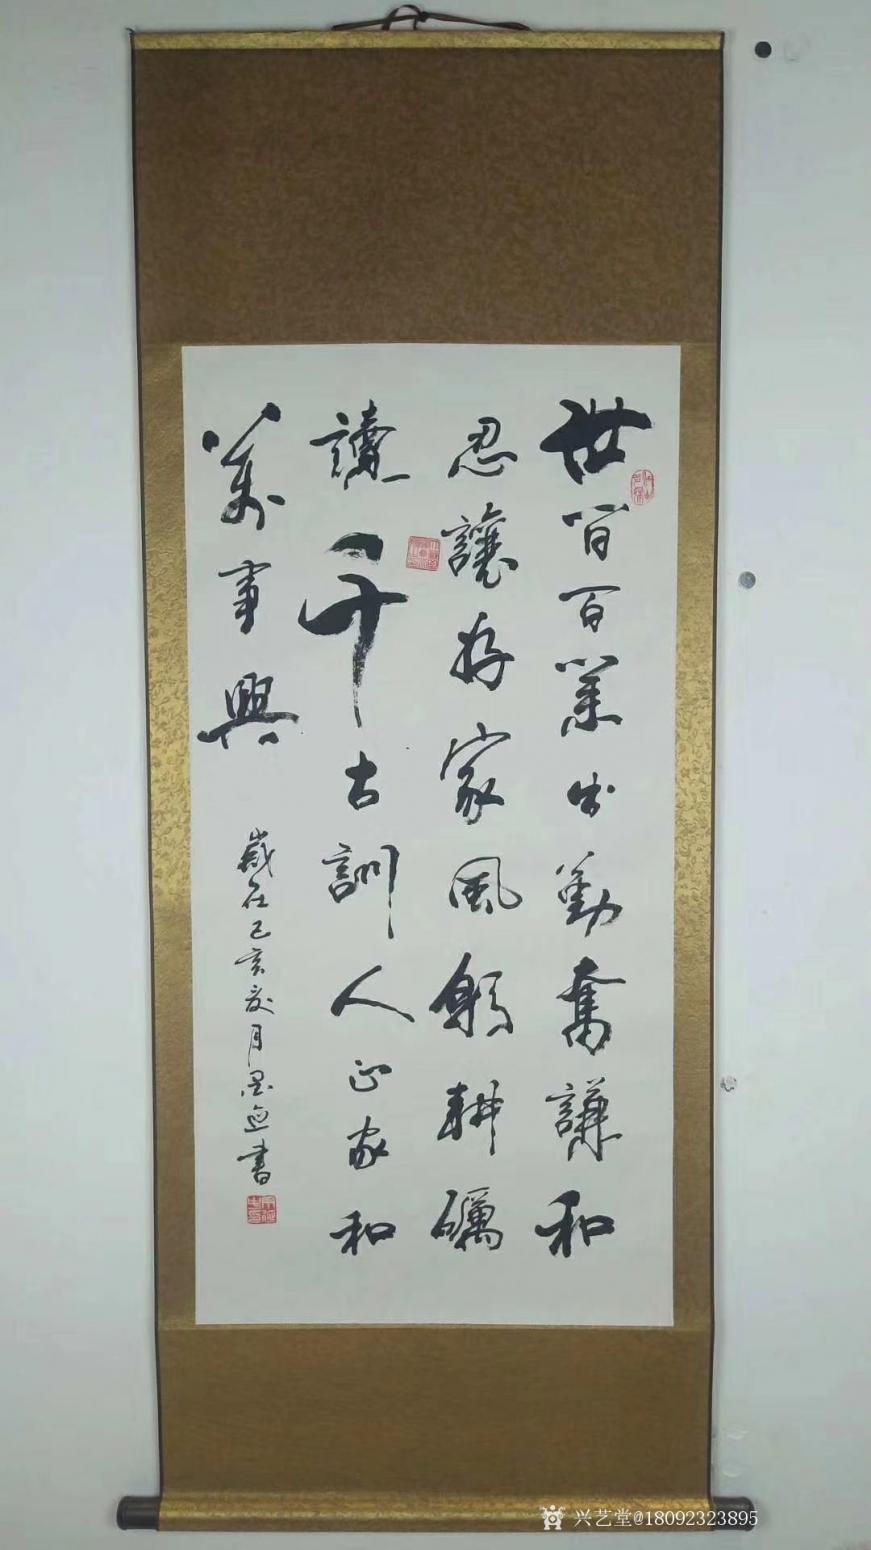 世間百業出勤奮謙和
忍讓存家風躬耕礪
讀千古訓人正家和
萬事興
歲在己亥夏月墨書
兴艺堂@18092323895